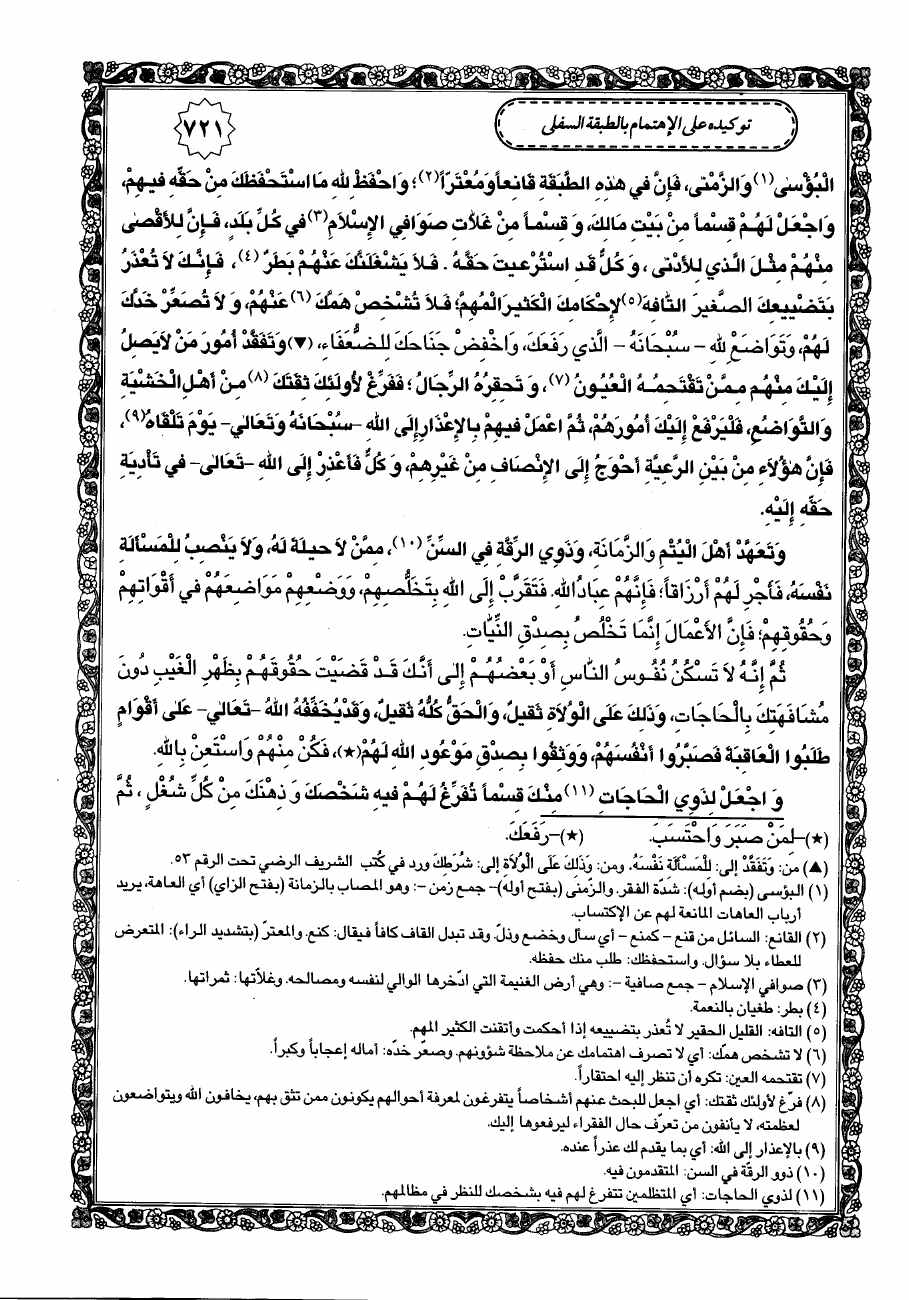 توكيده على الإهتمام بالطبقة السفلى
٧٢١
الْبُؤْسى(١) وَالزَّمْنى، فَإِنَّ في هذِهِ الطَّبَقَةِ قَانِعاً وَمُعْتَرّاً(٢)؛ وَاحْفَظْ لِلهِ مَا اسْتَحْفَظَكَ مِنْ حَقِّه فيهِمْ،
وَاجْعَلْ لَهُمْ قِسْماً مِنْ بَيْتِ مَالِكَ، وَ قِسْماً مِنْ غَلَّاتِ صَوَافِي الإِسْلَامِ(٣) في كُلِّ بَلَدٍ، فَإِنَّ لِلأَقْصى
مِنْهُمْ مِثْلَ الَّذي لِلأَدْنى، وَ كُلٌّ قَدِ اسْتُرْعيتَ حَقَّهُ. فَلَا يَشْغَلَنَّكَ عَنْهُمْ بَطَرٌ(٤)، فَإِنَّكَ لَا تُعْذَرُ
بِتَضْييعِكَ الصَّغيرَ التَّافِهَ(٥) لإِحْكَامِكَ الْكَثيرَ الْمُهِمَّ؛ فَلَا تُشْخِصْ هَمَّكَ(٦) عَنْهُمْ، وَ لَا تُصَعِّرْ خَدَّكَ
لَهُمْ، وَتَوَاضَعْ لِلهِ – سُبْحَانَهُ – الَّذي رَفَعَكَ، وَاخْفِضْ جَنَاحَكَ لِلضُّعَفَاءِ، (▼) وَتَفَقَّدْ أُمُورَ مَنْ لَا يَصِلُ
إِلَيْكَ مِنْهُمْ مِمَّنْ تَقْتَحِمُهُ الْعُيُونُ(٧)، وَ تَحْقِرُهُ الرِّجَالُ؛ فَفَرِّغْ لأُولئِكَ ثِقَتَكَ(٨) مِنْ أَهْلِ الْخَشْيَةِ
وَالتَّوَاضُعِ، فَلْيَرْفَعْ إِلَيْكَ أُمُورَهُمْ، ثُمَّ اعْمَلْ فيهِمْ بِالإِعْذَارِ إِلَى اللهِ –سُبْحَانَهُ وَتَعَالى– يَوْمَ تَلْقَاهُ(٩)،
فَإِنَّ هؤُلَاءِ مِنْ بَيْنِ الرَّعِيَّةِ أَحْوَجُ إِلَى الإِنْصَافِ مِنْ غَيْرِهِمْ، وَ كُلٌّ فَأَعْذِرْ إِلَى اللهِ –تَعَالى– في تَأْدِيَةِ
حَقِّهِ إِلَيْهِ.
وَتَعَهَّدْ أَهْلَ الْيُتْمِ وَالزَّمَانَةِ، وَذَوِي الرِّقَّةِ فِي السِّنِّ(١٠)، مِمَّنْ لَا حيلَةَ لَهُ، وَلَا يَنْصِبُ لِلْمَسْأَلَةِ
نَفْسَهُ، فَأَجْرِ لَهُمْ أَرْزَاقاً؛ فَإِنَّهُمْ عِبَادُ اللهِ. فَتَقَرَّبْ إِلَى اللهِ بِتَخَلُّصِهِمْ، وَوَضْعِهِمْ مَوَاضِعَهُمْ في أَقْوَاتِهِمْ
وَحُقُوقِهِمْ؛ فَإِنَّ الأَعْمَالَ إِنَّمَا تَخْلُصُ بِصِدْقِ النِّيَّاتِ.
ثُمَّ إِنَّهُ لَا تَسْكُنُ نُفُوسُ النَّاسِ أَوْ بَعْضُهُمْ إِلى أَنَّكَ قَدْ قَضَيْتَ حُقُوقَهُمْ بِظَهْرِ الْغَيْبِ دُونَ
مُشَافَهَتِكَ بِالْحَاجَاتِ، وَذلِكَ عَلَى الْوُلَاةِ ثَقيلٌ، وَالْحَقُّ كُلُّهُ ثَقيلٌ، وَقَدْ يُخَفِّفُهُ اللهُ –تَعَالى– عَلى أَقْوَامٍ
طَلَبُوا الْعَاقِبَةَ فَصَبَّرُوا أَنْفُسَهُمْ، وَوَثِقُوا بِصِدْقِ مَوْعُودِ اللهِ لَهُمْ(★)، فَكُنْ مِنْهُمْ وَاسْتَعِنْ بِاللهِ.
وَ اجْعَلْ لِذَوِي الْحَاجَاتِ(١١) مِنْكَ قِسْماً تُفَرِّغُ لَهُمْ فيهِ شَخْصَكَ وَ ذِهْنَكَ مِنْ كُلِّ شُغْلٍ، ثُمَّ
(★)–لِمَنْ صَبَرَ وَاحْتَسَبَ. (★)–رَفَعَكَ.
(▲) من: وَتَفَقَّدْ إلى: لِلْمَسْأَلَةِ نَفْسَهُ، ومن: وَذَلِكَ عَلَى الْوُلَاةِ إلى: شُرَطِكَ ورد في كُتب الشريف الرضي تحت الرقم ٥٣.
(١) البؤسى (بضم أوله): شدّة الفقر. والزمنى (بفتح أوله)– جمع زمن –: وهو المصاب بالزمانة (بفتح الزاي) أي العاهة، يريد
أرباب العاهات المانعة لهم عن الإكتساب.
(٢) القانع: السائل من قنع – كمنع – أي سأل وخضع وذلّ. وقد تبدل القاف كافاً فيقال: كنع. والمعترّ (بتشديد الراء): المتعرض
للعطاء بلا سؤال. واستحفظك: طلب منك حفظه.
(٣) صوافي الإسلام – جمع صافية –: وهي أرض الغنيمة التي ادّخرها الوالي لنفسه ومصالحه. وغلاّتها: ثمراتها.
(٤) بطر: طغيان بالنعمة.
(٥) التافه: القليل الحقير لا تُعذر بتضييعه إذا أحكمت وأتقنت الكثير المهم.
(٦) لا تشخص همّك: أي لا تصرف اهتمامك عن ملاحظة شؤونهم. وصعّر خدّه: أماله إعجاباً وكبراً.
(٧) تقتحمه العين: تكره أن تنظر إليه احتقاراً.
(٨) فرّغ لأولئك ثقتك: أي اجعل للبحث عنهم أشخاصاً يتفرغون لمعرفة أحوالهم يكونون ممن تثق بهم، يخافون الله ويتواضعون
لعظمته، لا يأنفون من تعرّف حال الفقراء ليرفعوها إليك.
(٩) بالإعذار إلى الله: أي بما يقدم لك عذراً عنده.
(١٠) ذوو الرقّة في السن: المتقدمون فيه.
(١١) لذوي الحاجات: أي المتظلمين تتفرغ لهم فيه بشخصك للنظر في مظالمهم.